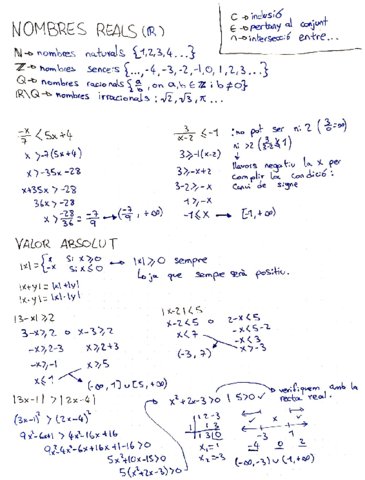 NOMBRES REALS (ℝ)
⊂ → inclusió
∈ → pertany al conjunt
∩ → intersecció entre...
ℕ → nombres naturals {1,2,3,4...}
ℤ → nombres sencers {..., -4,-3,-2,-1,0,1,2,3...}
ℚ → nombres racionals {a/b, on a,b ∈ ℤ i b≠0}
ℝ\ℚ → nombres irracionals; √2, √3, π...
-x/7 < 5x+4
x > -7(5x+4)
x > -35x-28
x+35x > -28
36x > -28
x > -28/36 = -7/9 → (-7/9, +∞)
3/(x-2) ≤ -1
3 ≥ -1(x-2)
3 ≥ -x+2
3-2 ≥ -x
1 ≥ -x
-1 ≤ x → [-1, +∞)
no pot ser ni 2
llavors negatiu la x per
complir la condició:
Canvi de signe
VALOR ABSOLUT
|x| = { x si x ≥ 0
-x si x ≤ 0 → |x| ≥ 0 sempre
Loja que sempre serà positiu.
|x+y| = |x|+|y|
|x·y| = |x|·|y|
|3-x| ≥ 2
3-x ≥ 2 o x-3 ≥ 2
-x ≥ 2-3 x ≥ 2+3
-x ≥ -1 x ≥ 5
x ≤ 1 (-∞, 1] ∪ [5, +∞)
|x-2| < 5
x-2 < 5 o 2-x < 5
x < 7 -x < 5-2
-x < 3
(-3, 7) x > -3
|3x-1| > |2x-4|
(3x-1)² > (2x-4)²
9x²-6x+1 > 4x²-16x+16
9x²-4x²-6x+16x+1-16 > 0
5x²+10x-15 > 0
5(x²+2x-3) > 0
x²+2x-3 > 0 | 5 > 0 ✓ → verifiquem amb la
recta real.
1 2 -3
1 1 3
1 3 | 0
x₁ = 1
x₂ = -3
✓ x ✓
-3 1
-4 0 2
(-∞, -3) ∪ (1, +∞)